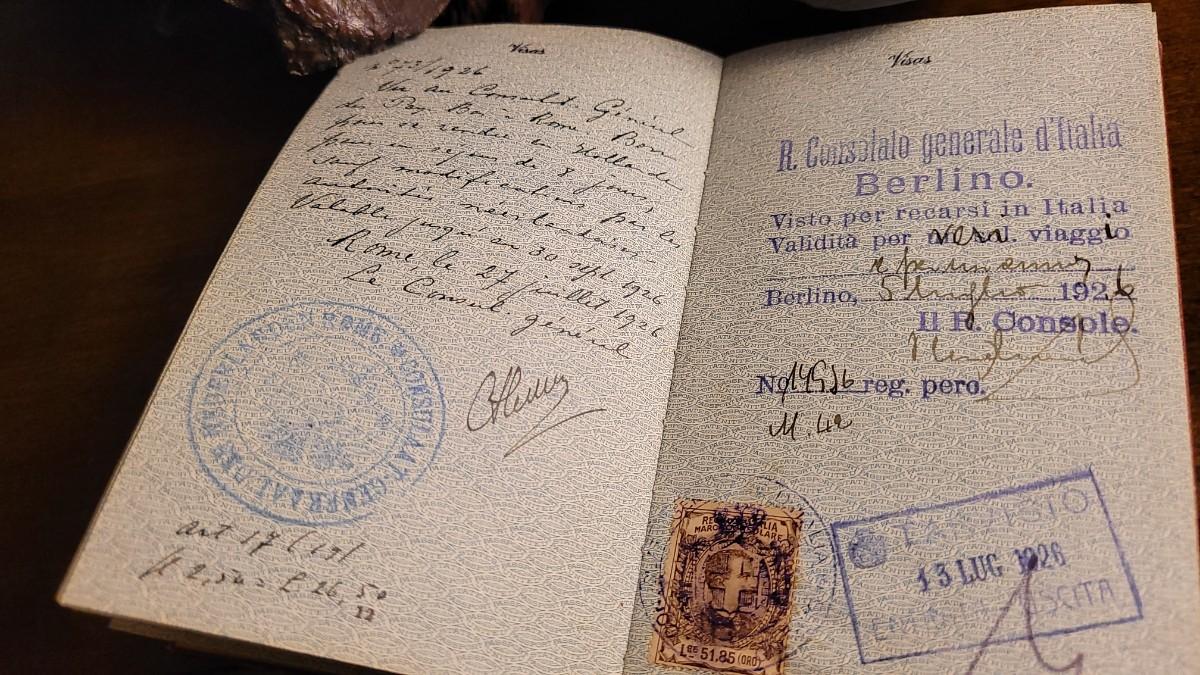 Visas
/1926
Vu au Consulat Général
des Pays Bas à Rome. Bon
pour se rendre en Hollande
pour un séjour de 8 jours,
sauf modification par les
autorités néerlandaises.
Valable jusqu'au 30 sept 1926
Rome, le 27 juillet 1926
Le Consul général
CONSULAAT GENERAAL DER NEDERLANDEN ROME
art 17
2,50 = £ 26,50
Visas
R. Consolato generale d'Italia
Berlino.
Visto per recarsi in Italia
Validita per viaggio
Berlino, 5 luglio 1926
Il R. Console.
No reg. pero.
M. 42
LRE 51.85 (ORO)
13 LUG 1926